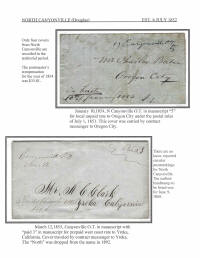 NORTH CANYONVILLE (Douglas) EST. 6 JULY 1852
Only four covers
from North
Canyonville are
recorded in the
territorial period.
The postmaster's
compensation
for the year of 1854
was
Oregon City
January 10,1854, N Canyonville O.T. in manuscript "5"
for local unpaid rate to Oregon City under the postal rates
of July 1, 1851. This cover was carried by contract
messenger to Oregon City.
There are no
known reported
circular
postmarkings
for North
Canyonville.
The earliest
handstamp to
be found was
for June 9,
Paid 3
Mr. W. C. Clark
Yreka California
March 12,1855, Canyonville O.T. in manuscript with
"paid 3" in manuscript for prepaid west coast rate to Yreka,
California. Cover traveled by contract messenger to Yreka.
The "North" was dropped from the name in 1892.